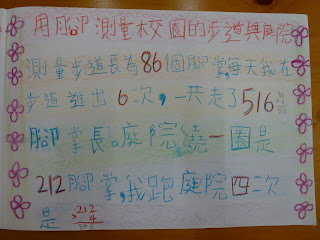 用腳測量校園的步道與庭院
測量步道長為86個腳掌,每天我在
步道進出6次,一共走了516
腳掌長。庭院繞一圈是
212腳掌,我跑庭院四次
是 212
×4